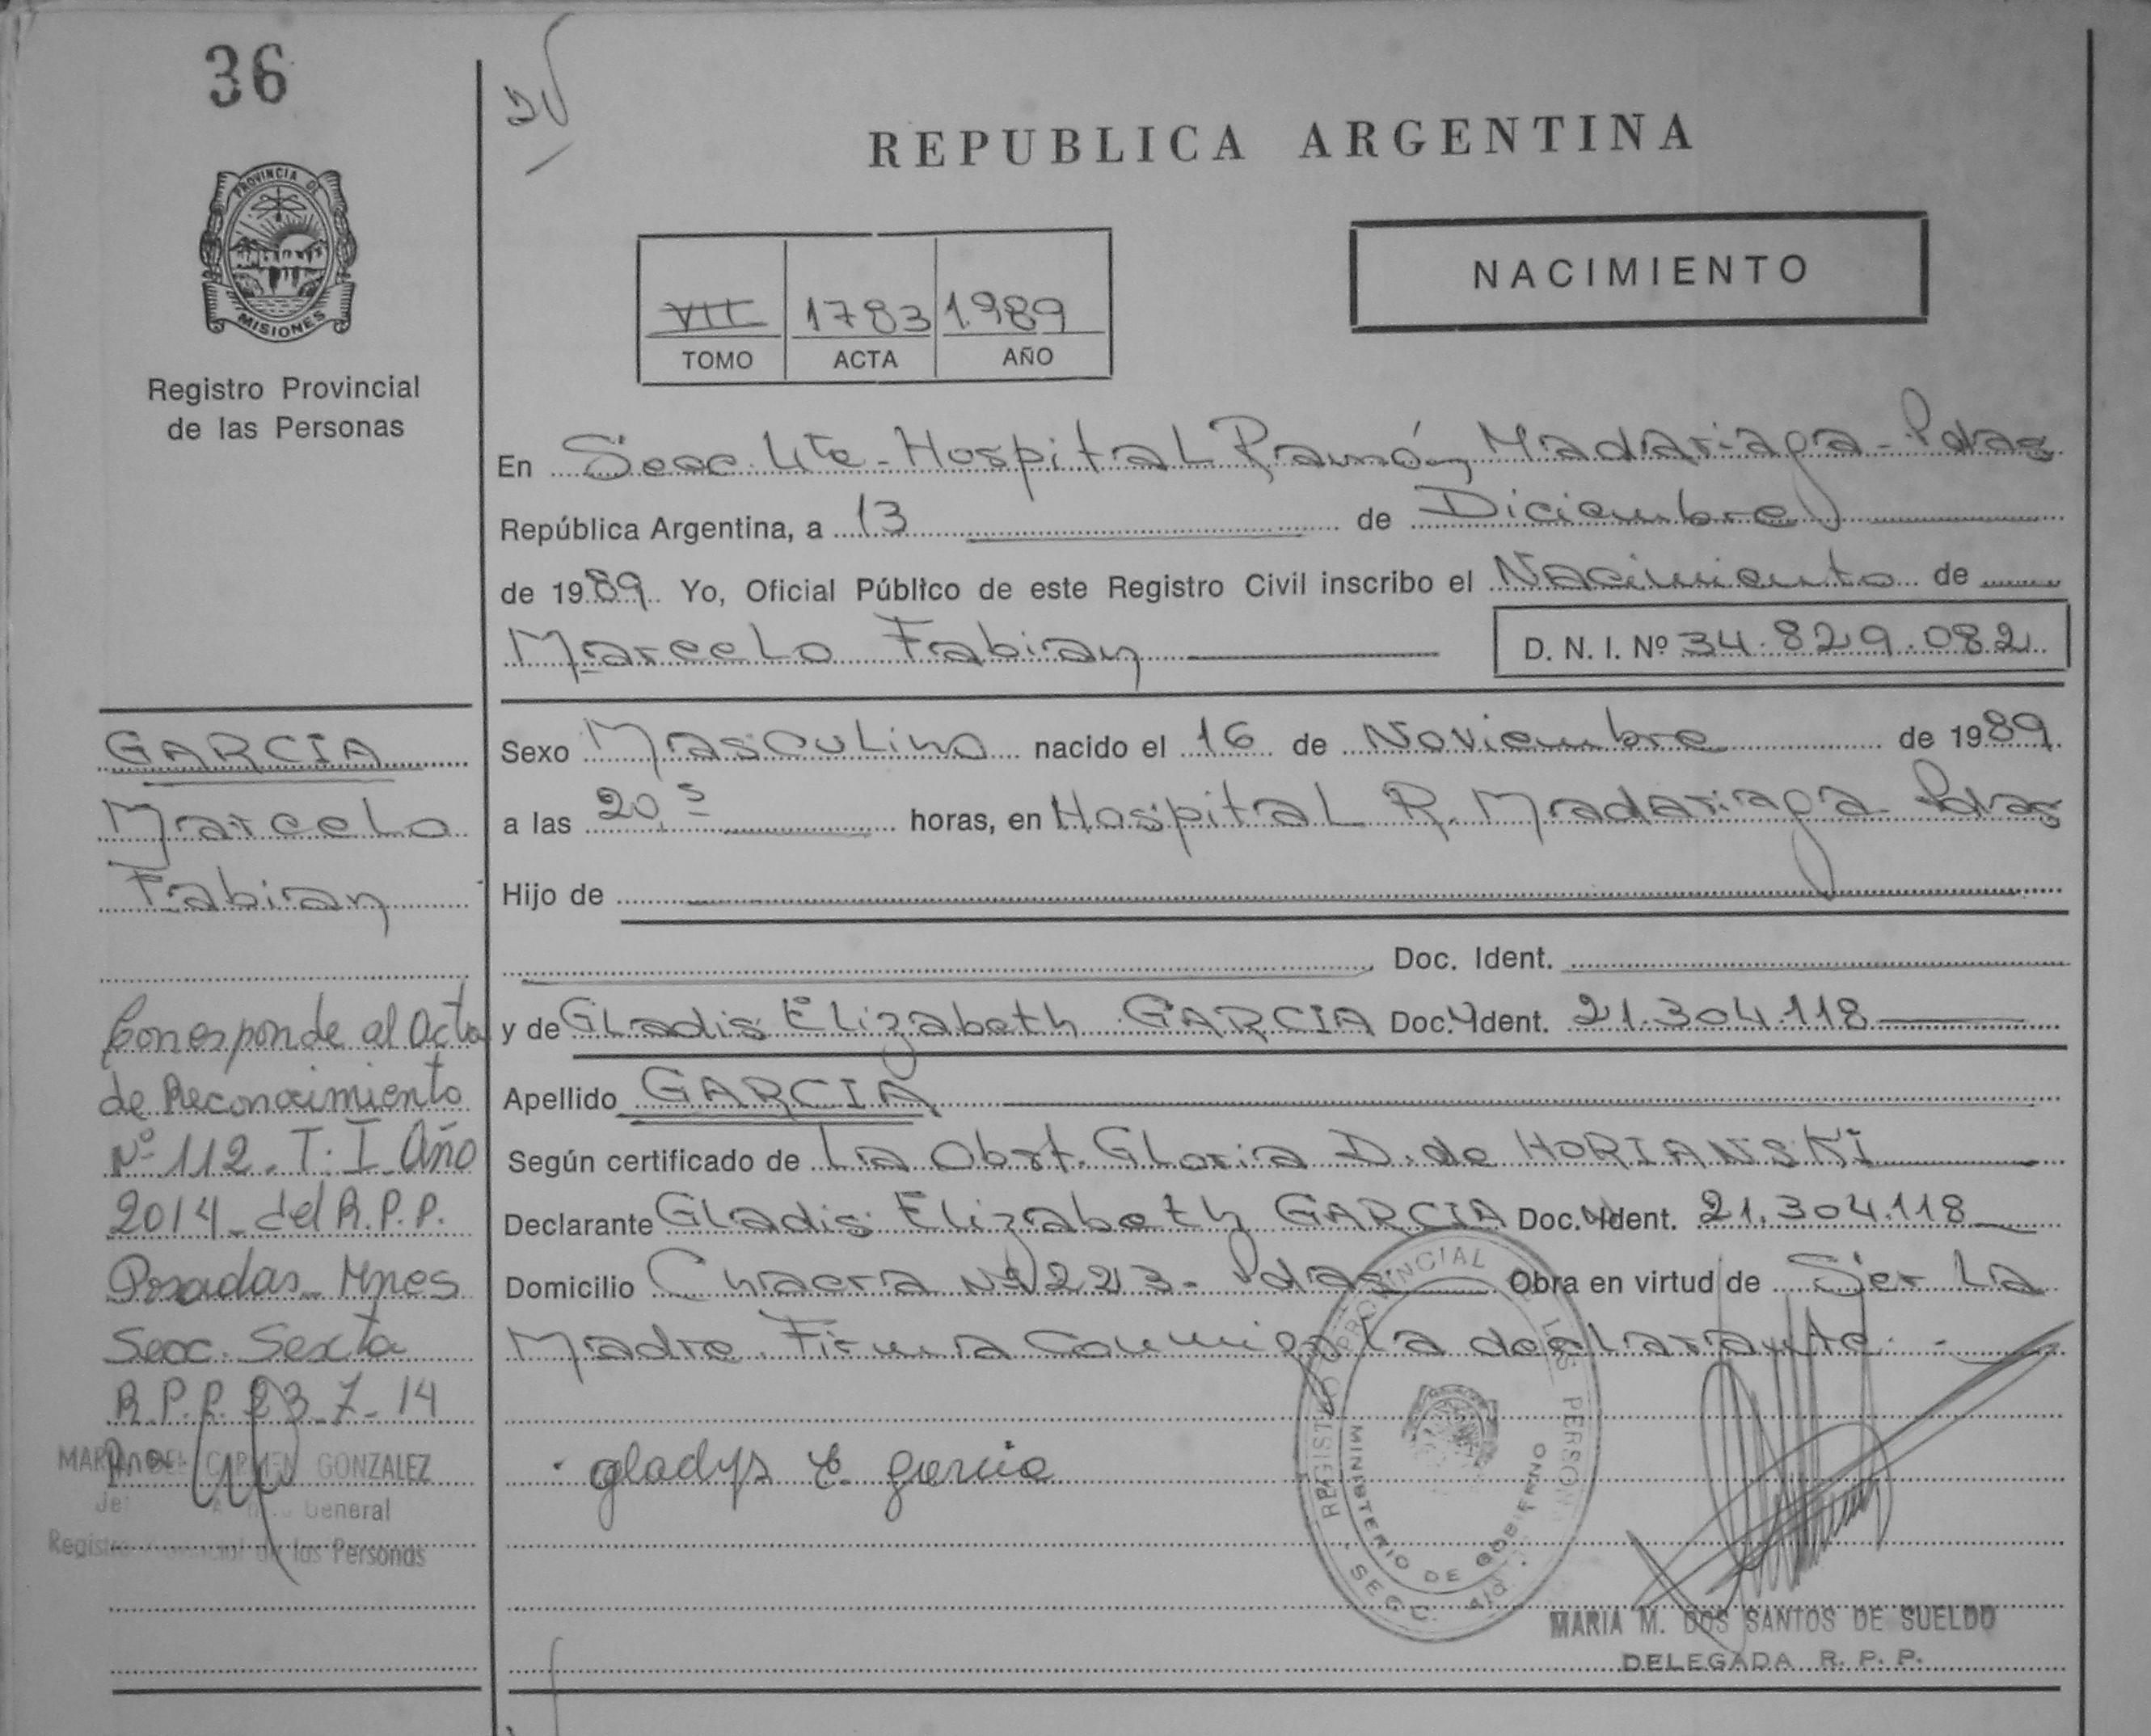 36
PROVINCIA DE
MISIONES
Registro Provincial
de las Personas
REPUBLICA ARGENTINA
NACIMIENTO
VII 1783 1.989
TOMO ACTA AÑO
En Secc. 4ta - Hospital Ramón Madariaga - Pdas
República Argentina, a 13 de Diciembre
de 1989. Yo, Oficial Público de este Registro Civil inscribo el Nacimiento de
Marcelo Fabian
D. N. I. Nº 34.829.082
Sexo Masculino nacido el 16 de Noviembre de 1989.
a las 20,5 horas, en Hospital R. Madariaga Pdas
Hijo de
Doc. Ident.
y de Gladis Elizabeth GARCIA Doc. Ident. 21.304.118
Apellido GARCIA
Según certificado de La Obst. Gloria D. de HORIANSKI
Declarante Gladis Elizabeth GARCIA Doc. Ident. 21.304.118
Domicilio Chacra Nº 223 - Pdas Obra en virtud de Ser La
Madre. Firma Conmigo la declarante. -
gladys E. garcia
REGISTRO PROVINCIAL DE LAS PERSONAS
MINISTERIO DE GOBIERNO
SECC. 4ta
MARIA M. DOS SANTOS DE SUELDO
DELEGADA R. P. P.
GARCIA
Marcelo
Fabian
Corresponde al Acta
de Reconocimiento
Nº 112 - T. I Año
2014 - del R.P.P.
Posadas - Mnes
Secc. Sexta
R.P.P. 23-7-14
MARIA DEL CARMEN GONZALEZ
General
Registro Provincial de las Personas